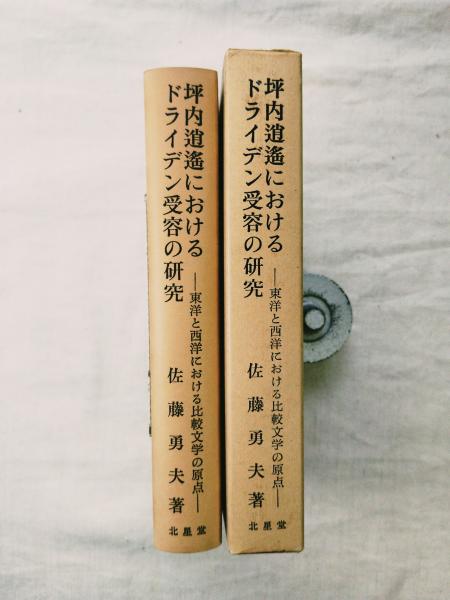 坪内逍遙における
ドライデン受容の研究
──東洋と西洋における比較文学の原点──
佐藤勇夫著
北星堂
坪内逍遙における
ドライデン受容の研究
──東洋と西洋における比較文学の原点──
佐藤勇夫著
北星堂